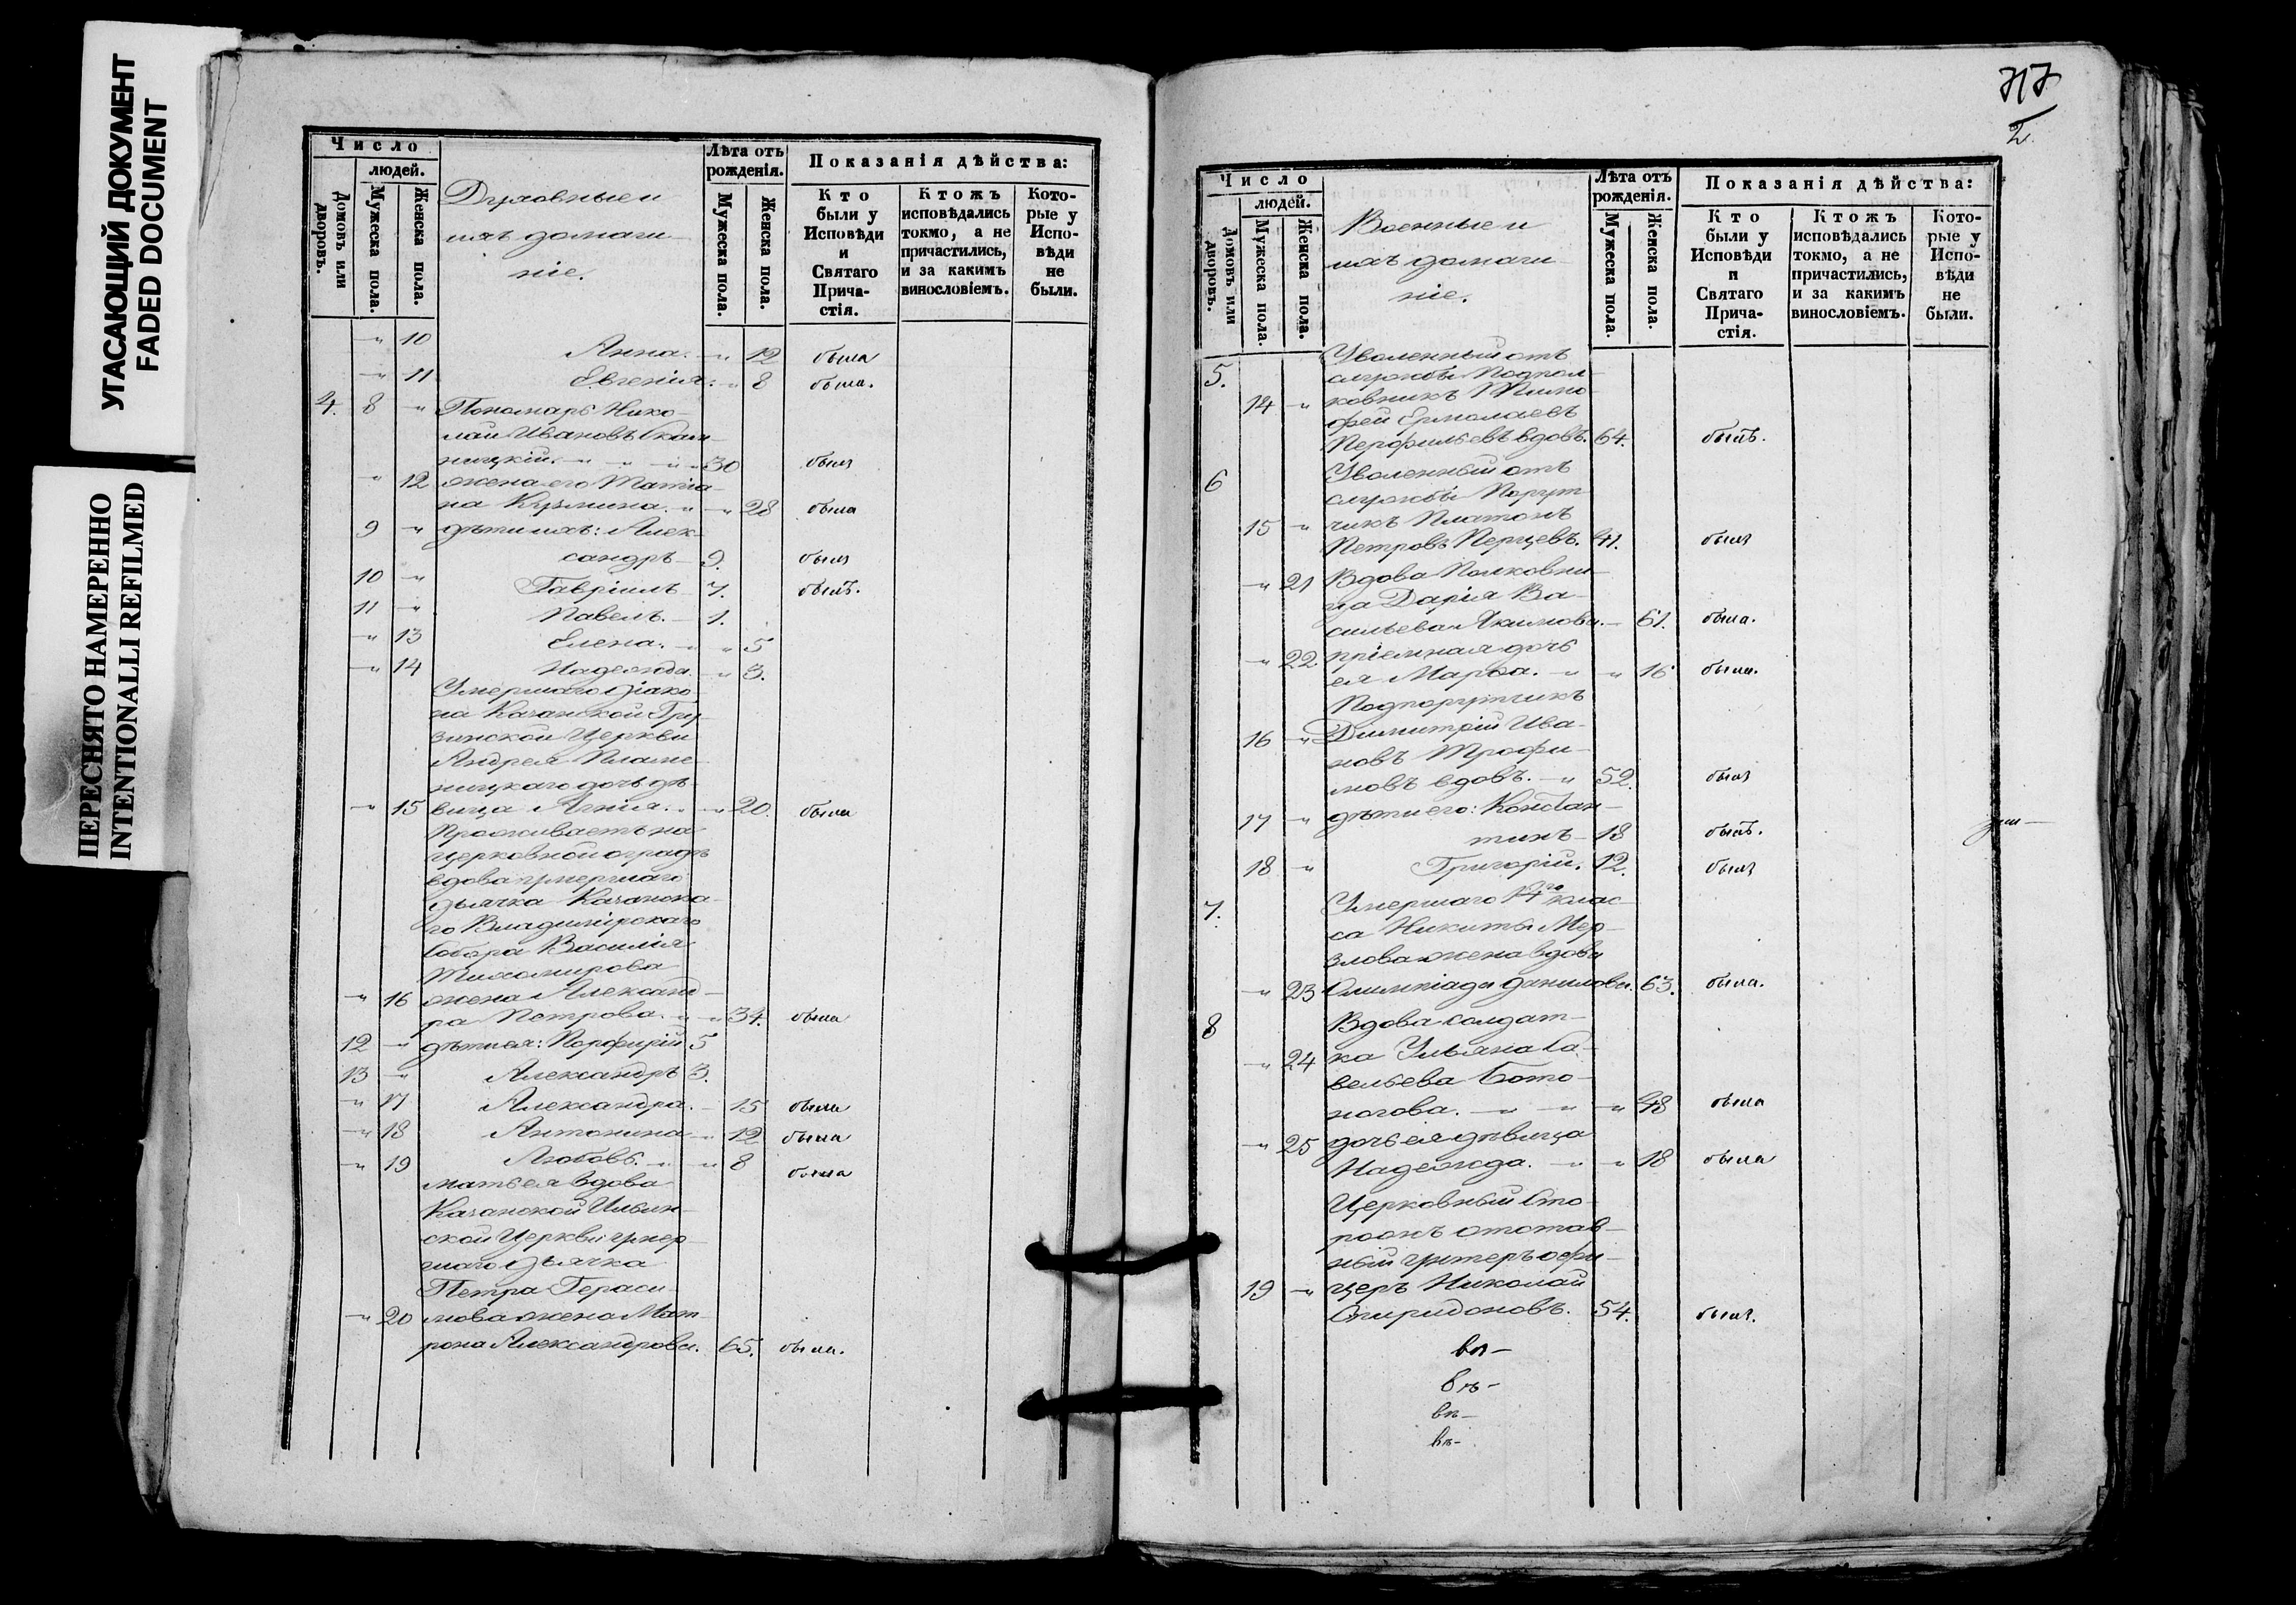 УГАСАЮЩИЙ ДОКУМЕНТ
FADED DOCUMENT
ПЕРЕСНЯТО НАМЕРЕННО
INTENTIONALLI REFILMED
Число
людей.
Домовъ или дворовъ.
Мужеска пола.
Женска пола.
Духовные и
ихъ домаш-
ніе.
Лѣта отъ рожденія.
Мужеска пола.
Женска пола.
Показанія дѣйства:
Кто были у Исповѣди и Святаго Прича-стія.
Ктожъ исповѣдались токмо, а не причастились, и за какимъ винословіемъ.
Кото-рые у Испо-вѣди не были.
" 10 Анна. " 12 была
" 11 Евгенія. " 8 была.
4. 8 " Пономарь Нико-
лай Ивановъ
ницкій. " " " 30 былъ
" 12 жена его Татіа-
на Кузмина. " " 28 была
9 " дѣти ихъ: Алек-
сандръ 9. былъ
10 " Гавріилъ 7. былъ.
11 " Павелъ. 1.
" 13 Елена. " " 5
" 14 Надежда. " 3.
Умершаго діако-
на Казанской Гру-
зинской Церкви
Андрея
ницкаго дочь дѣ-
" 15 вица Агнія. " 20. была
Проживаетъ на
церковной оградѣ
вдова умершаго
дьячка Казанска-
го Владимірскаго
Собора Василія
Тихомирова
" 16 жена Александ-
ра Петрова. " " 34. была
12 " дѣти ея: Порфирій 5
13 " Александръ 3.
" 17 Александра. 15 была
" 18 Антонина " 12 была
" 19 Любовь. " " 8 была
мать ея вдова
Казанской Ильин-
ской Церкви умер-
шаго дьячка
Петра Гераси-
" 20 мова жена Мат-
рона Александрова. 65. была.
717
2
Число
людей.
Домовъ или дворовъ.
Мужеска пола.
Женска пола.
Военные и
ихъ домаш-
ніе.
Лѣта отъ рожденія.
Мужеска пола.
Женска пола.
Показанія дѣйства:
Кто были у Исповѣди и Святаго Прича-стія.
Ктожъ исповѣдались токмо, а не причастились, и за какимъ винословіемъ.
Кото-рые у Испо-вѣди не были.
Уволенный отъ
5. службы Подпол-
14 " ковникъ Тимо-
фей Ермолаевъ
Перфильевъ вдовъ. 64. былъ.
6 Уволенный отъ
службы Порут-
15 " чикъ Платонъ
Петровъ Перцевъ. 41. былъ
" 21 Вдова Полковни-
ца Дарія Ва-
сильева Якимова. 61. была.
" 22 пріемная дочь
ея Марѳа. " " 16 была.
Подпоручикъ
16 " Димитрій Ива-
новъ Трофи-
мовъ вдовъ. " 52. былъ
17 " дѣти его: Констан-
тинъ 18 былъ.
18 " Григорій. 12. былъ
7. Умершаго 14го клас-
са Никиты Мер-
злова жена вдова
" 23 Олимпіада Данилова. 63. была.
8 Вдова солдат-
" 24 ка Ульяна Са-
вельева
ногова. " " " 48 была
" 25 дочь ея дѣвица
Надежда. " " 18 была
Церковный Сто-
рожъ отстав-
ный унтеръ офи-
19 " церъ Николай
Спиридоновъ. 54. былъ.